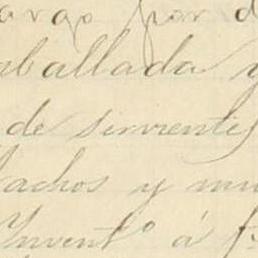 argo por d
aballada y
de sirvientes
lachos y mu
Invent.º á f